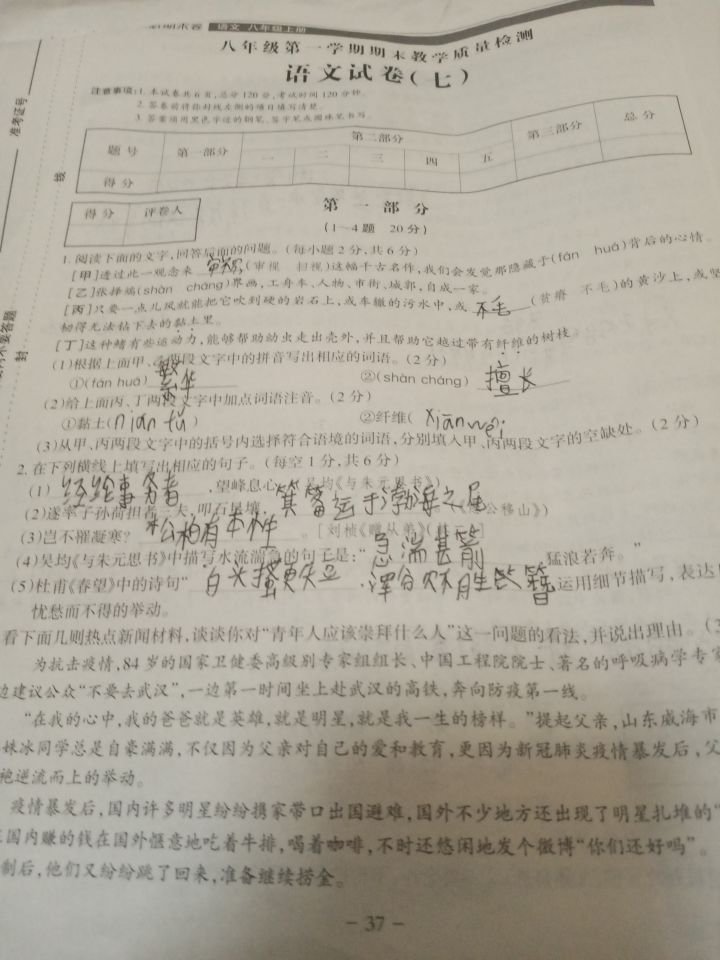 期末卷 语文 八年级上册
八年级第一学期期末教学质量检测
语文试卷(七)
注意事项:1.本试卷共6页,总分120分,考试时间120分钟。
2.答卷前将密封线左侧的项目填写清楚。
3.答案须用黑色字迹的钢笔、签字笔或圆珠笔书写。
准考证号
题号 第一部分 第二部分 第三部分 总分
一 二 三 四 五
得分
线
得分 评卷人
第一部分
(1~4题 20分)
1.阅读下面的文字,回答后面的问题。(每小题2分,共6分)
[甲]透过此一观念来 审视 (审视 扫视)这幅千古名作,我们会发觉那隐藏于(fán huá)背后的心情。
[乙]张择端(shàn cháng)界画,工舟车、人物、市街、城郭,自成一家。
[丙]只要一点儿风就能把它吹到硬的岩石上,或车辙的污水中,或 不毛 (贫瘠 不毛)的黄沙上,或坚
韧得无法钻下去的黏土里。
[丁]这种鳍有些运动力,能够帮助动虫走出壳外,并且帮助它越过带有纤维的树枝。
封
不要答题
(1)根据上面甲、 两段文字中的拼音写出相应的词语。(2分)
①(fán huá) 繁华 ②(shàn cháng) 擅长
(2)给上面丙、丁两段文字中加点词语注音。(2分)
①黏土(nián tǔ) ②纤维( xiānwéi
(3)从甲、丙两段文字中的括号内选择符合语境的词语,分别填入甲、丙两段文字的空缺处。(2分)
2.在下列横线上填写出相应的句子。(每空1分,共6分)
(1) 经纶事务者 ,望峰息心 吴均《与朱元思书》)
(2)遂率子孙荷担者三夫,叩石垦壤, 箕畚运于渤海之尾 公移山》)
(3)岂不罹凝寒? 松柏有本性 。[刘桢《赠从弟》
(4)吴均《与朱元思书》中描写水流湍急的句子是:“ 急湍甚箭 猛浪若奔。”
(5)杜甫《春望》中的诗句“ 白头搔更短 ,浑欲不胜簪 运用细节描写,表达
忧愁而不得的举动。
看下面几则热点新闻材料,谈谈你对“青年人应该崇拜什么人”这一问题的看法,并说出理由。(3
为抗击疫情,84岁的国家卫健委高级别专家组组长、中国工程院院士、著名的呼吸病学专家
边建议公众“不要去武汉”,一边第一时间坐上赴武汉的高铁,奔向防疫第一线。
“在我的心中,我的爸爸就是英雄,就是明星,就是我一生的榜样。”提起父亲,山东威海市
妹冰同学总是自豪满满,不仅因为父亲对自己的爱和教育,更因为新冠肺炎疫情暴发后,父
袍逆流而上的举动。
疫情暴发后,国内许多明星纷纷携家带口出国避难,国外不少地方还出现了明星扎堆的“
国内赚的钱在国外惬意地吃着牛排,喝着咖啡,不时还悠闲地发个微博“你们还好吗”。
制后,他们又纷纷跳了回来,准备继续捞金。
- 37 -